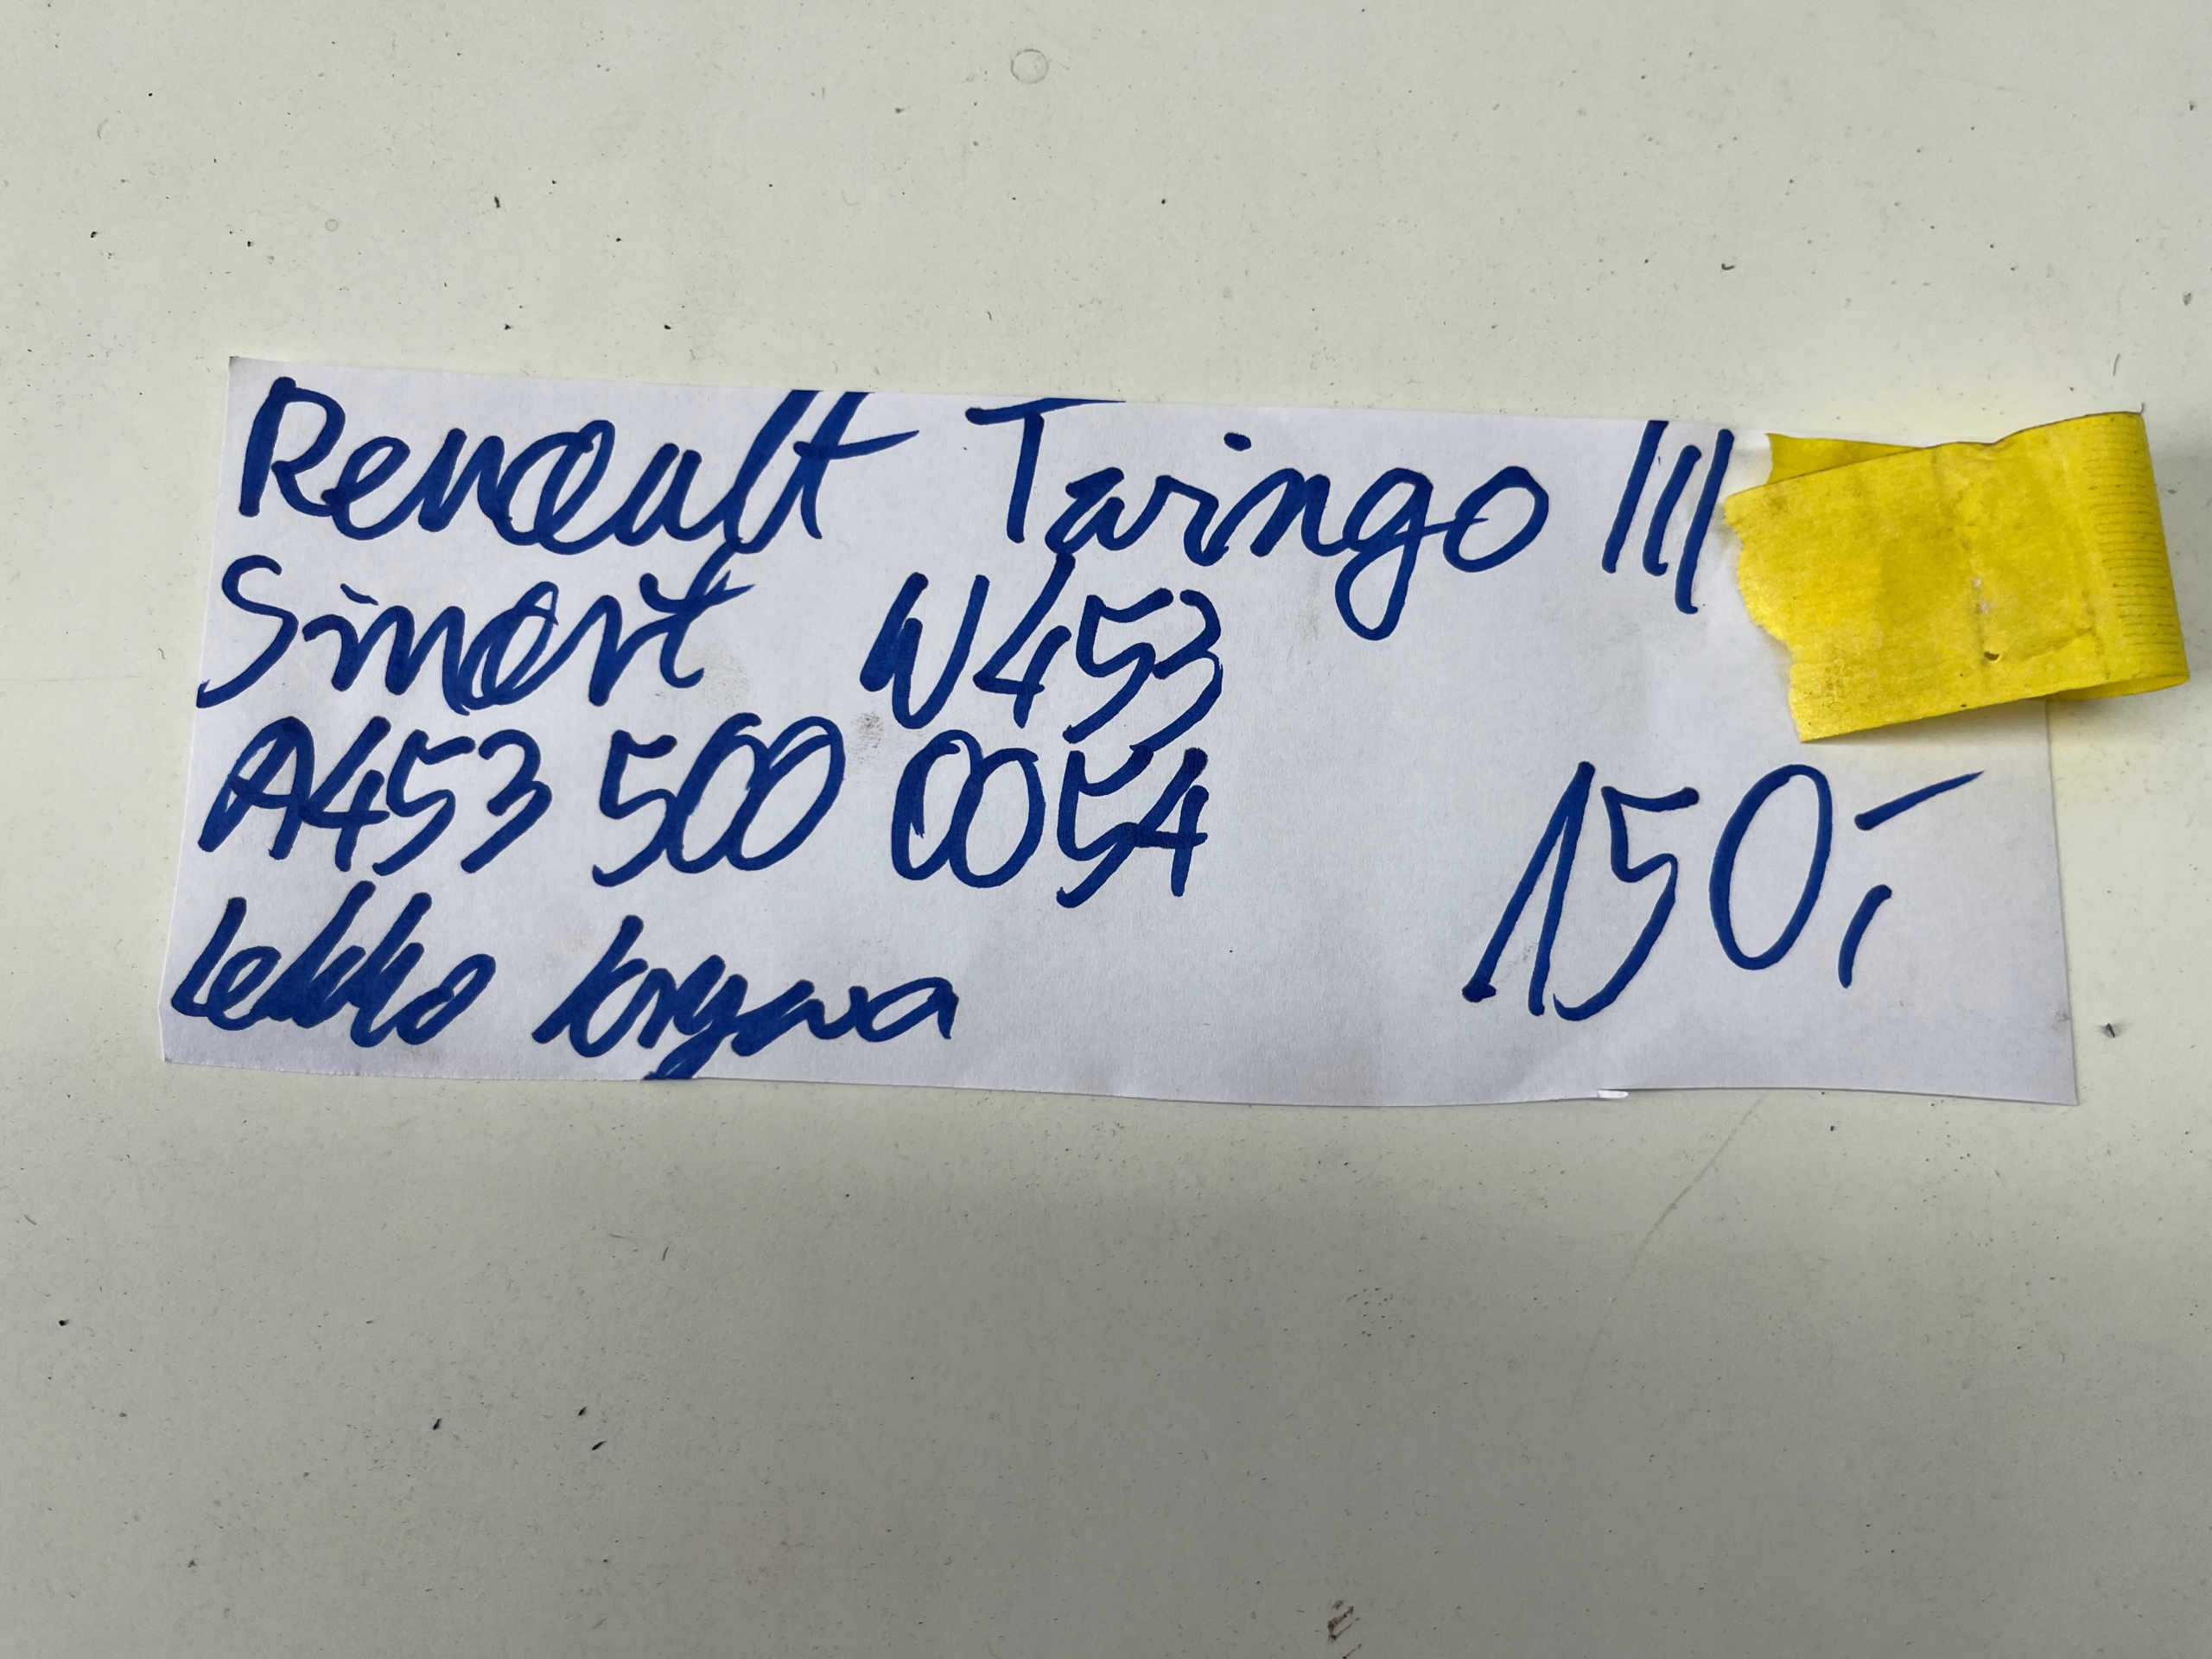 Renault Twingo III
Smart W453
A453 500 0054
lekko krzywa
150,-